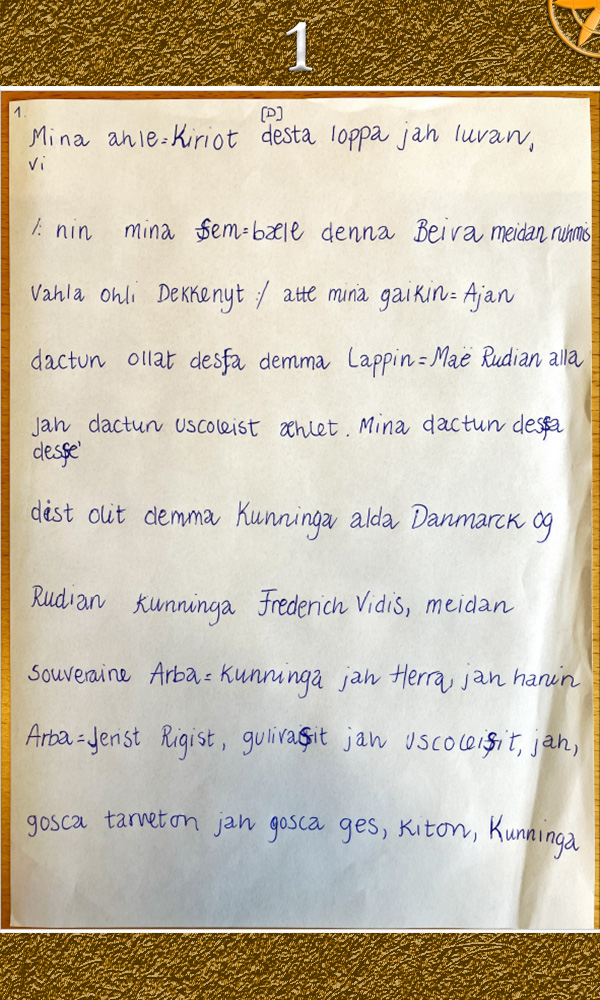 1
1.
[D]
Mina ahle=Kiriot desta loppa jah luvan,
vi
/: nin mina Sem=bæle denna Beiva meidan ruhmis
Vahla ohli Dekkenyt :/ atte mina gaikin=Ajan
dactun ollat desſa demma Lappin=Maë Rudian alla
jah dactun Uscoleist æhlet. Mina dactun desſa
desſe'
dist olit demma Kunninga alda Danmarck og
Rudian Kunninga Frederich Vidis, meidan
souveraine Arba=Kunninga jah Herra, jah hanin
Arba=Jerist Rigist, gulivaſsit jah Uscoleiſsit, jah,
gosca tarveton jah gosca ges, Kiton, Kunninga